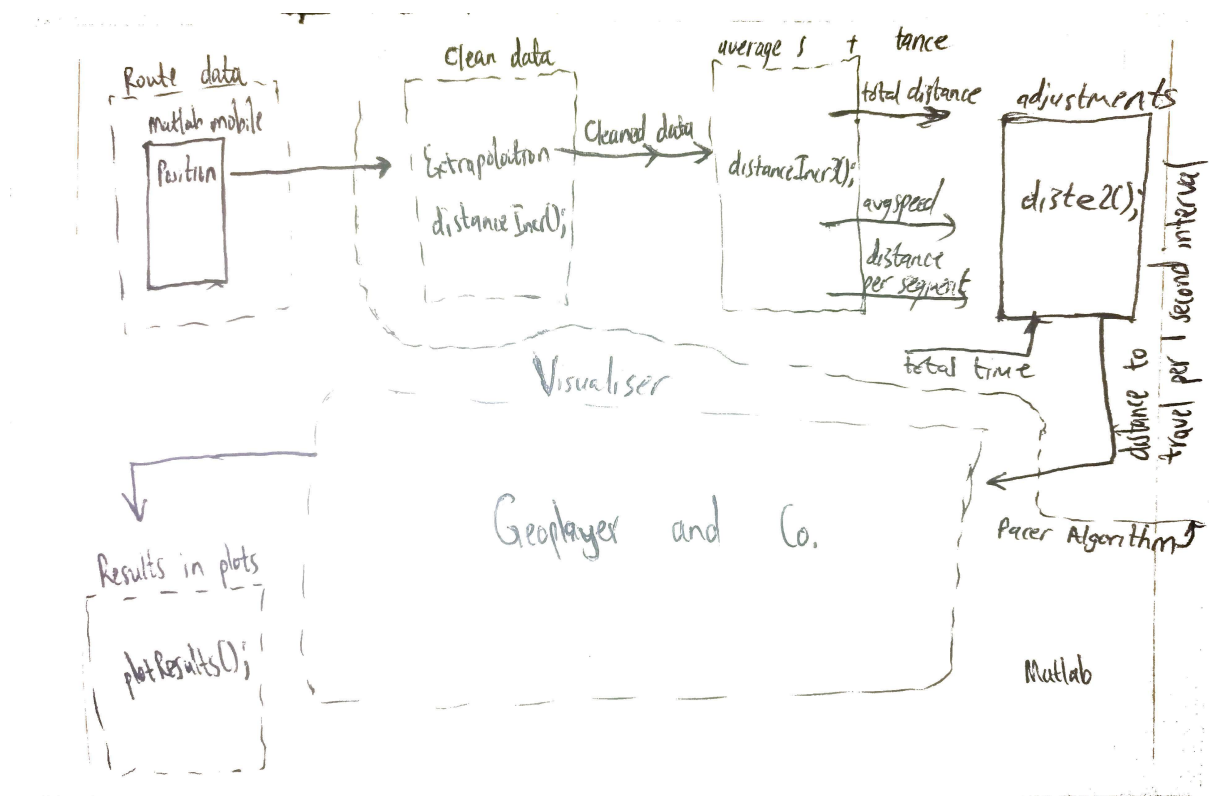 Route data
Matlab mobile
Position
Clean data
Extrapolation
distanceIncr();
Cleaned data
average s + tance
distanceIncrX();
total distance
avgspeed
distance
per segment
adjustments
diste2();
total time
distance to
travel per 1 second interval
Pacer Algorithm
Visualiser
Geoplayer and Co.
Results in plots
plotResults();
Matlab